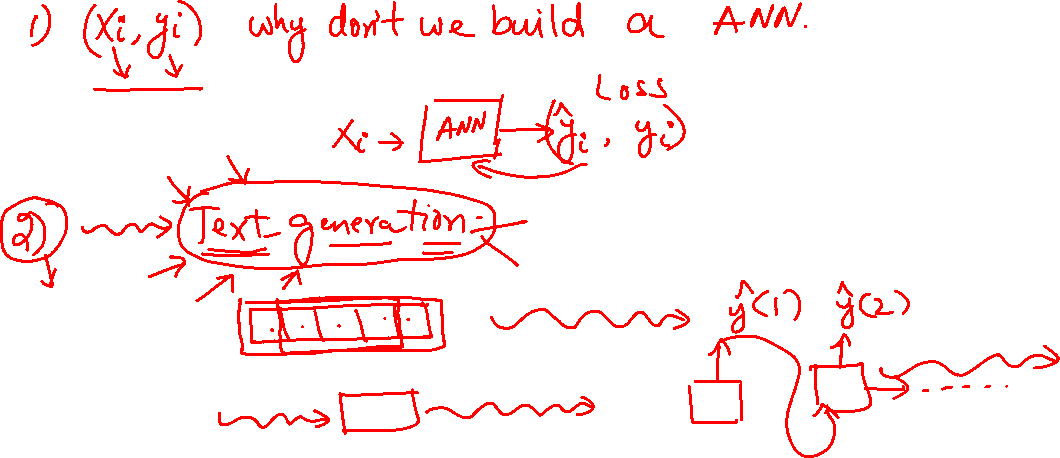 1) (xi, yi) why don't we build a ANN.
Loss
xi → ANN → (ŷi, yi)
2) Text generation
ŷ(1) ŷ(2)